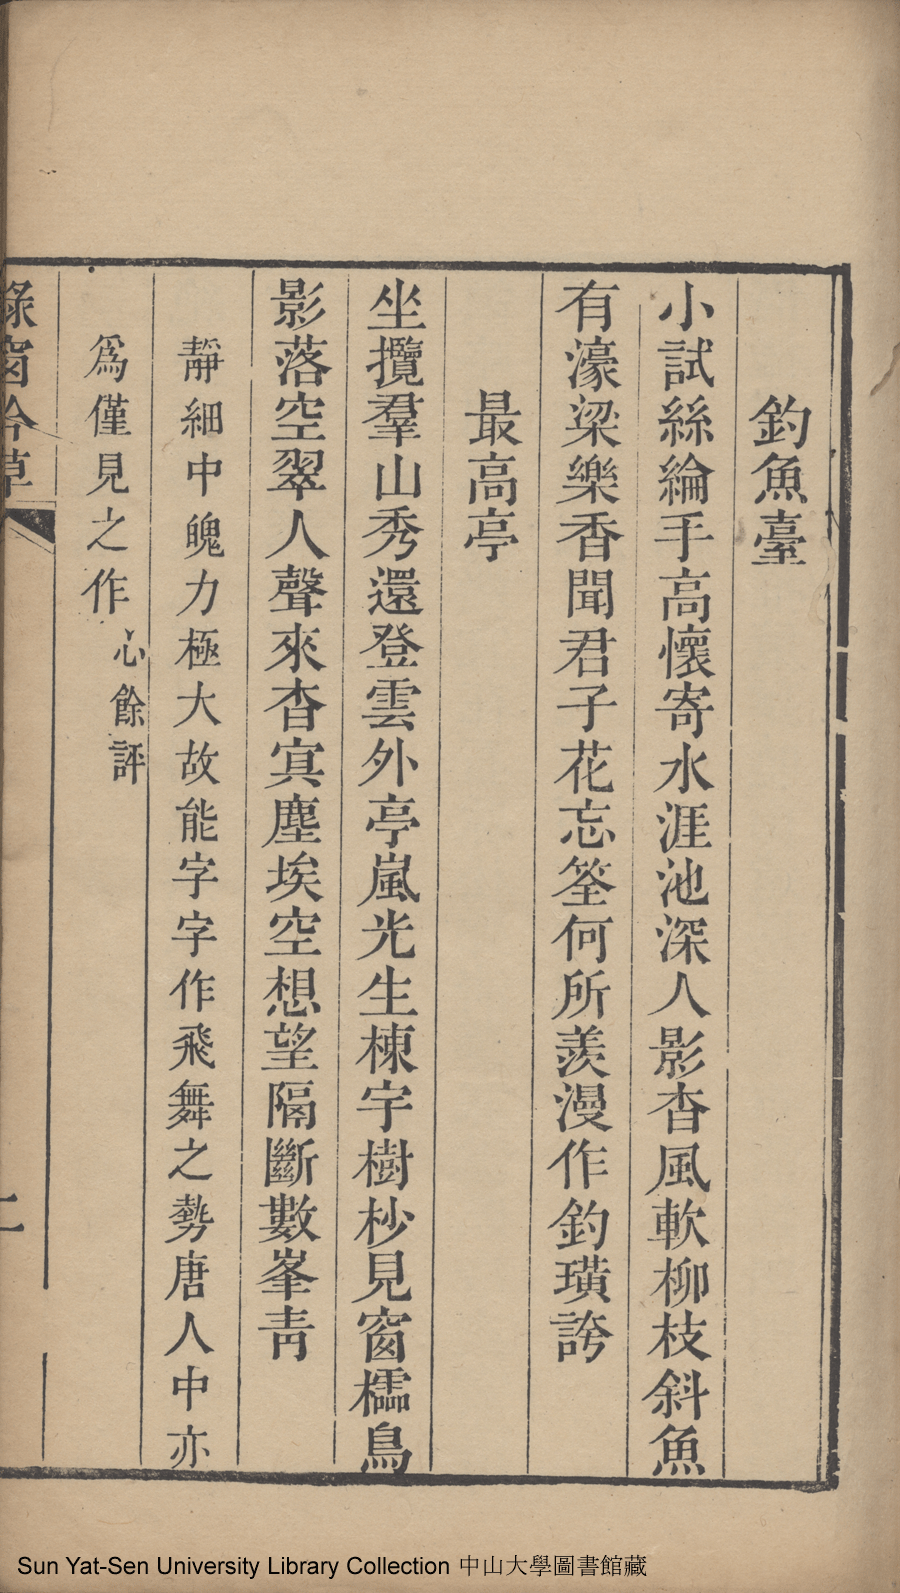 釣魚臺
小試絲綸手高懷寄水涯池深人影杳風軟柳枝斜魚
有濠梁樂香聞君子花忘筌何所羨漫作釣璜誇
最高亭
坐攬羣山秀還登雲外亭嵐光生棟宇樹杪見窗櫺鳥
影落空翠人聲來杳冥塵埃空想望隔斷數峯靑
靜細中魄力極大故能字字作飛舞之勢唐人中亦
爲僅見之作 心餘評
綠窗吟草
Sun Yat-Sen University Library Collection 中山大學圖書館藏